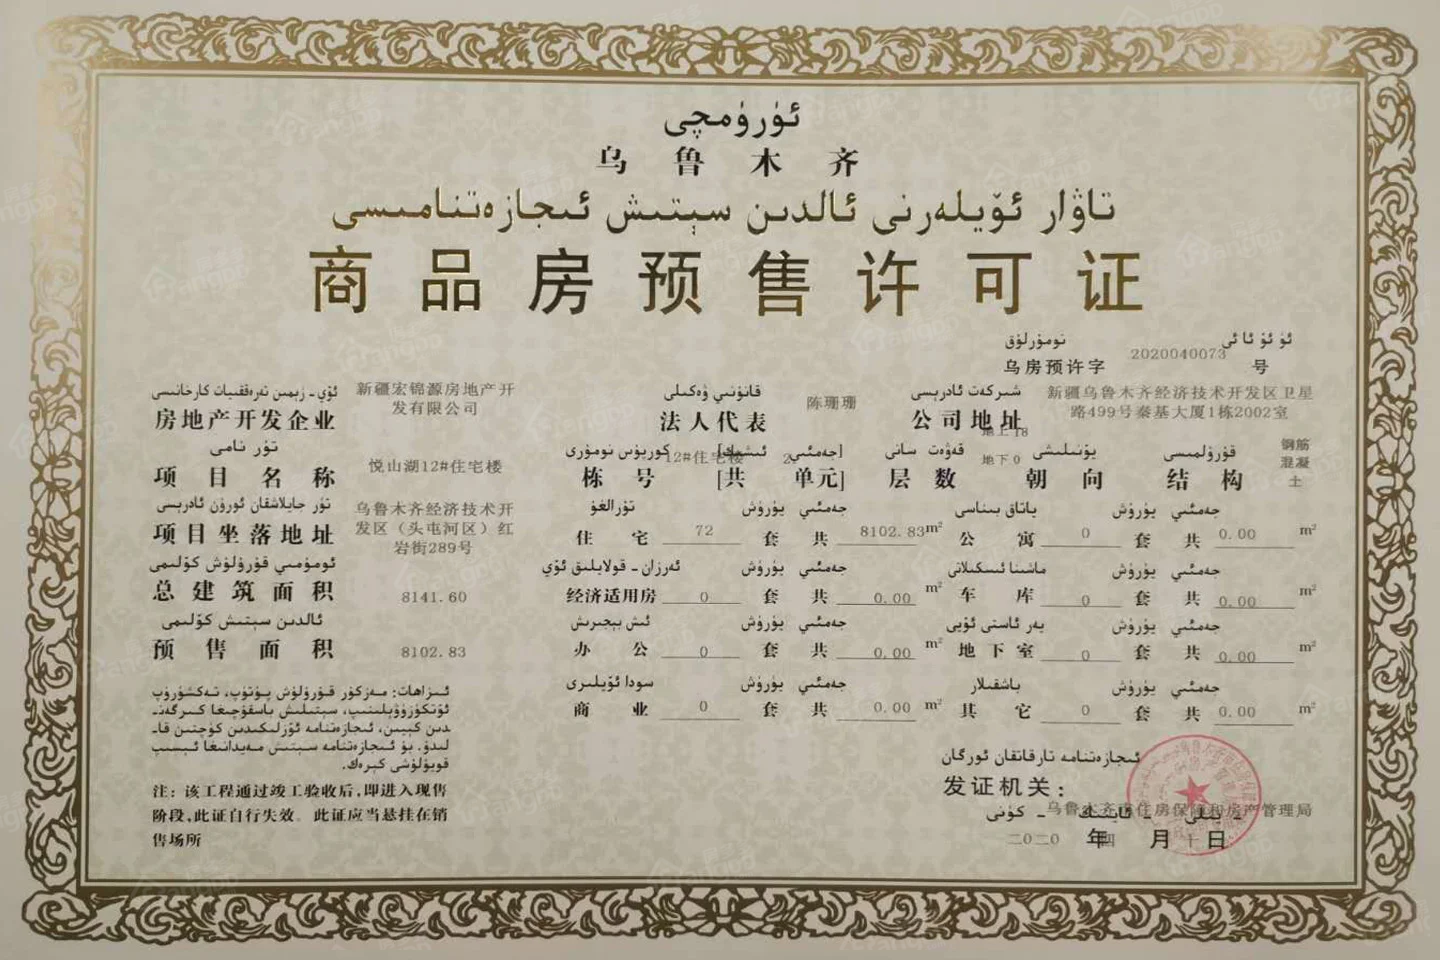 ئۈرۈمچى
乌鲁木齐
تاۋار ئۆيلەرنى ئالدىن سېتىش ئىجازەتنامىسى
商品房预售许可证
ئۈ ئۆ ئا ئى نومۇرلۇق
乌房预许字 2020040073 号
ئۆي - زېمىن تەرەققىيات كارخانىسى
房地产开发企业 新疆宏锦源房地产开
发有限公司
قانۇنىي ۋەكىلى
法人代表 陈珊珊
شىركەت ئادرېسى
公司地址 新疆乌鲁木齐经济技术开发区卫星
路499号秦基大厦1栋2002室
تۈر نامى
项目名称 悦山湖12#住宅楼
كورپۇس نومۇرى [جەمئىي ئىشىك]
栋号 12#住宅楼 [共 2 单元]
قەۋەت سانى
层数 地上18
地下0
يۆنىلىشى
朝向
قۇرۇلمىسى
结构 钢筋
混凝
土
تۈر جايلاشقان ئورۇن ئادرېسى
项目坐落地址 乌鲁木齐经济技术开
发区（头屯河区）红
岩街289号
تۇرالغۇ يۈرۈش جەمئىي
住宅 72 套 共 8102.83 m²
ياتاق بىناسى يۈرۈش جەمئىي
公寓 0 套 共 0.00 m²
ئومۇمىي قۇرۇلۇش كۆلىمى
总建筑面积 8141.60
ئەرزان - قولايلىق ئۆي يۈرۈش جەمئىي
经济适用房 0 套 共 0.00 m²
ماشىنا ئىسكىلاتى يۈرۈش جەمئىي
车库 0 套 共 0.00 m²
ئالدىن سېتىش كۆلىمى
预售面积 8102.83
ئىش بېجىرىش يۈرۈش جەمئىي
办公 0 套 共 0.00 m²
يەر ئاستى ئۆيى يۈرۈش جەمئىي
地下室 0 套 共 0.00 m²
سودا ئۆيلىرى يۈرۈش جەمئىي
商业 0 套 共 0.00 m²
باشقىلار يۈرۈش جەمئىي
其它 0 套 共 0.00 m²
ئىزاھات: مەزكۇر قۇرۇلۇش پۈتۈپ، تەكشۈرۈپ
ئۆتكۈزۈۋېلىنىپ، سېتىلىش باسقۇچىغا كىرگەن-
دىن كېيىن، ئىجازەتنامە ئۆزلىكىدىن كۈچتىن قا-
لىدۇ. بۇ ئىجازەتنامە سېتىش مەيدانىغا ئېسىپ
قويۇلۇشى كېرەك.
注：该工程通过竣工验收后，即进入现售
阶段，此证自行失效。此证应当悬挂在销
售场所
ئىجازەتنامە تارقاتقان ئورگان
发证机关：
乌鲁木齐市住房保障和房产管理局
- يىلى - ئاينىڭ - كۈنى
二〇二〇 年 四 月 十 日